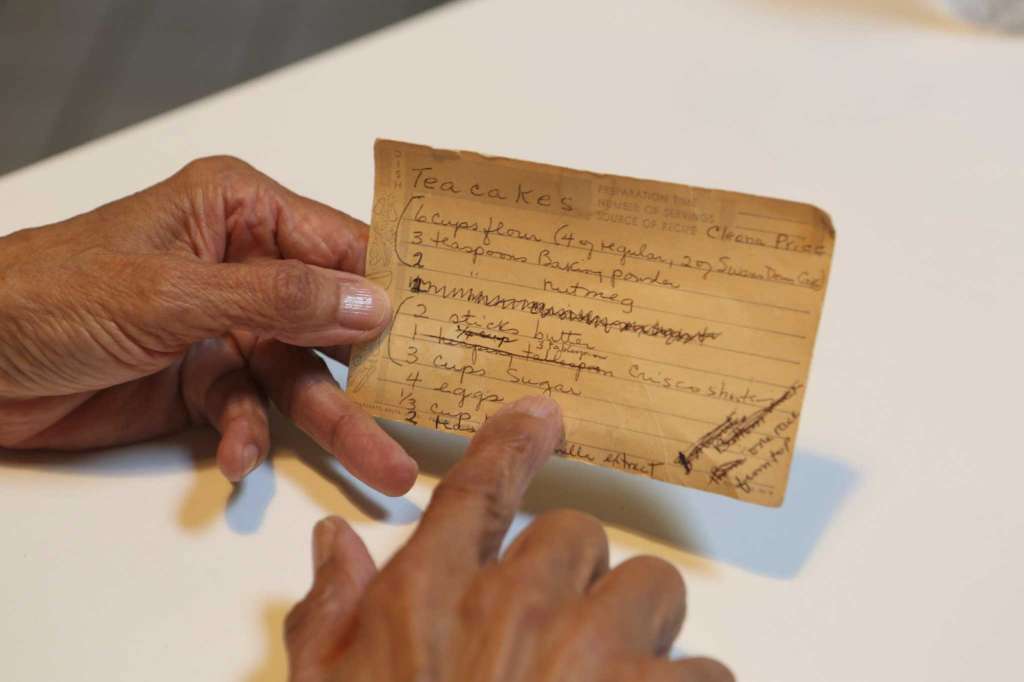 DISH
Teacakes
PREPARATION TIME
NUMBER OF SERVINGS
SOURCE OF RECIPE Cleona Price
6 cups flour (4 of regular, 2 of Swans Down Cake)
3 teaspoons Baking powder
2 " nutmeg
2 sticks butter
1/2 cup 3 tablespoon
1 heaping tablespoon Crisco shortening
3 cups sugar
4 eggs
1/3 cup
2 teas
extract
one rack
from top